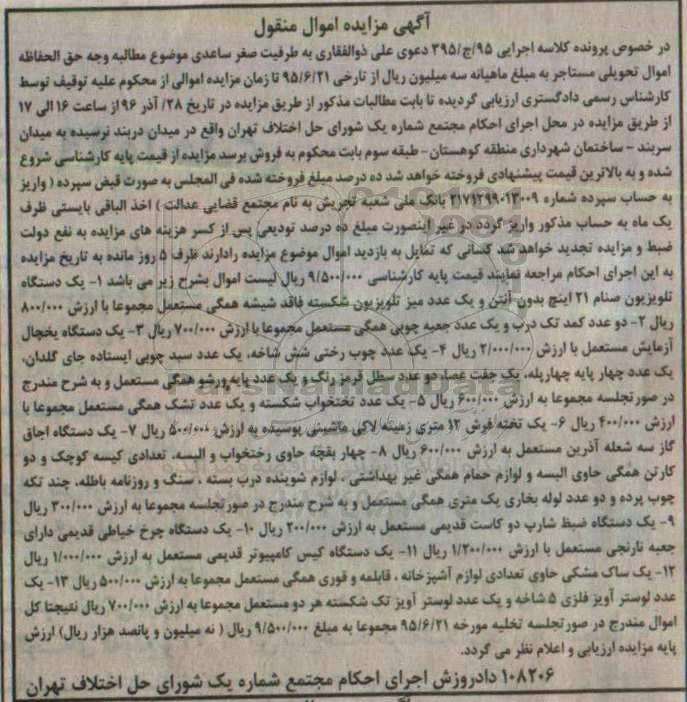 آگهی مزایده اموال منقول
در خصوص پرونده کلاسه اجرایی ۹۵/ج/۳۹۵ دعوی علی ذوالفقاری به طرفیت صغر ساعدی موضوع مطالبه وجه حق الحفاظه
اموال تحویلی مستاجر به مبلغ ماهیانه سه میلیون ریال از تارخی ۹۵/۶/۲۱ تا زمان مزایده اموالی از محکوم علیه توقیف توسط
کارشناس رسمی دادگستری ارزیابی گردیده تا بابت مطالبات مذکور از طریق مزایده در تاریخ ۲۸/ آذر ۹۶ از ساعت ۱۶ الی ۱۷
از طریق مزایده در محل اجرای احکام مجتمع شماره یک شورای حل اختلاف تهران واقع در میدان دربند نرسیده به میدان
سربند – ساختمان شهرداری منطقه کوهستان- طبقه سوم بابت محکوم به فروش برسد مزایده از قیمت پایه کارشناسی شروع
شده و به بالاترین قیمت پیشنهادی فروخته خواهد شد ده درصد مبلغ فروخته شده فی المجلس به صورت قبض سپرده ( واریز
به حساب سپرده شماره ۲۱۷۱۲۹۹۰۱۳۰۰۹ بانک ملی شعبه تجریش به نام مجتمع قضایی عدالت ) اخذ الباقی بایستی ظرف
یک ماه به حساب مذکور واریز گردد در غیر اینصورت مبلغ ده درصد تودیعی پس از کسر هزینه های مزایده به نفع دولت
ضبط و مزایده تجدید خواهد شد کسانی که تمایل به بازدید اموال موضوع مزایده رادارند ظرف ۵ روز مانده به تاریخ مزایده
به این اجرای احکام مراجعه نمایند قیمت پایه کارشناسی ۹/۵۰۰/۰۰۰ ریال لیست اموال بشرح زیر می باشد ۱- یک دستگاه
تلویزیون صنام ۲۱ اینچ بدون آنتن و یک عدد میز تلویزیون شکسته فاقد شیشه همگی مستعمل مجموعا با ارزش ۸۰۰/۰۰۰
ریال ۲- دو عدد کمد تک درب و یک عدد جعبه چوبی همگی مستعمل مجموعا با ارزش ۷۰۰/۰۰۰ ریال ۳- یک دستگاه یخچال
آزمایش مستعمل با ارزش ۲/۰۰۰/۰۰۰ ریال ۴- یک عدد چوب رختی شش شاخه، یک عدد سبد چوبی ایستاده جای گلدان،
یک عدد چهار پایه چهارپله، یک جفت عصا، دو عدد سطل قرمز رنگ و یک عدد پایه ورشو همگی مستعمل و به شرح مندرج
در صورتجلسه مجموعا به ارزش ۶۰۰/۰۰۰ ریال ۵- یک عدد تختخواب شکسته و یک عدد تشک همگی مستعمل مجموعا با
ارزش ۴۰۰/۰۰۰ ریال ۶- یک تخته فرش ۱۲ متری زمینه لاکی ماشینی پوسیده به ارزش ۵۰۰/۰۰۰ ریال ۷- یک دستگاه اجاق
گاز سه شعله آذرین مستعمل به ارزش ۶۰۰/۰۰۰ ریال ۸- چهار بقچه حاوی رختخواب و البسه، تعدادی کیسه کوچک و دو
کارتن همگی حاوی البسه و لوازم حمام همگی غیر بهداشتی ، لوازم شوینده درب بسته ، سنگ و روزنامه باطله، چند تکه
چوب پرده و دو عدد لوله بخاری یک متری همگی مستعمل و به شرح مندرج در صورتجلسه مجموعا به ارزش ۳۰۰/۰۰۰ ریال
۹- یک دستگاه ضبط شارپ دو کاست قدیمی مستعمل به ارزش ۲۰۰/۰۰۰ ریال ۱۰- یک دستگاه چرخ خیاطی قدیمی دارای
جعبه نارنجی مستعمل با ارزش ۱/۲۰۰/۰۰۰ ریال ۱۱- یک دستگاه کیس کامپیوتر قدیمی مستعمل به ارزش ۱/۰۰۰/۰۰۰ ریال
۱۲- یک ساک مشکی حاوی تعدادی لوازم آشپزخانه ، قابلمه و قوری همگی مستعمل مجموعا به ارزش ۵۰۰/۰۰۰ ریال ۱۳- یک
عدد لوستر آویز فلزی ۵ شاخه و یک عدد لوستر آویز تک شکسته هر دو مستعمل مجموعا به ارزش ۷۰۰/۰۰۰ ریال نقیجتا کل
اموال مندرج در صورتجلسه تخلیه مورخه ۹۵/۶/۲۱ مجموعا به مبلغ ۹/۵۰۰/۰۰۰ ریال ( نه میلیون و پانصد هزار ریال) ارزش
پایه مزایده ارزیابی و اعلام نظر می گردد.
۱۰۸۲۰۶ دادورزش اجرای احکام مجتمع شماره یک شورای حل اختلاف تهران